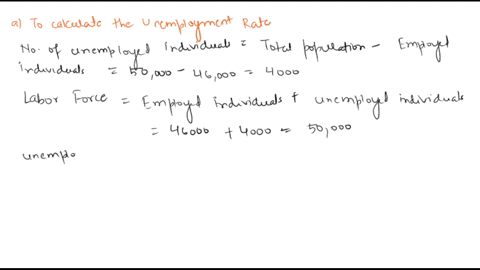 a) To calculate the Unemployment Rate
No. of unemployed individuals = Total population - Employed
individuals = 50,000 - 46,000 = 4000
Labor Force = Employed individuals + unemployed individuals
= 46000 + 4000 = 50,000
unemplo